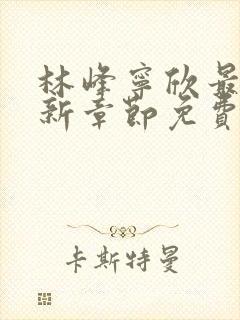 林峰寧欣最
新章節免費
卡斯特曼